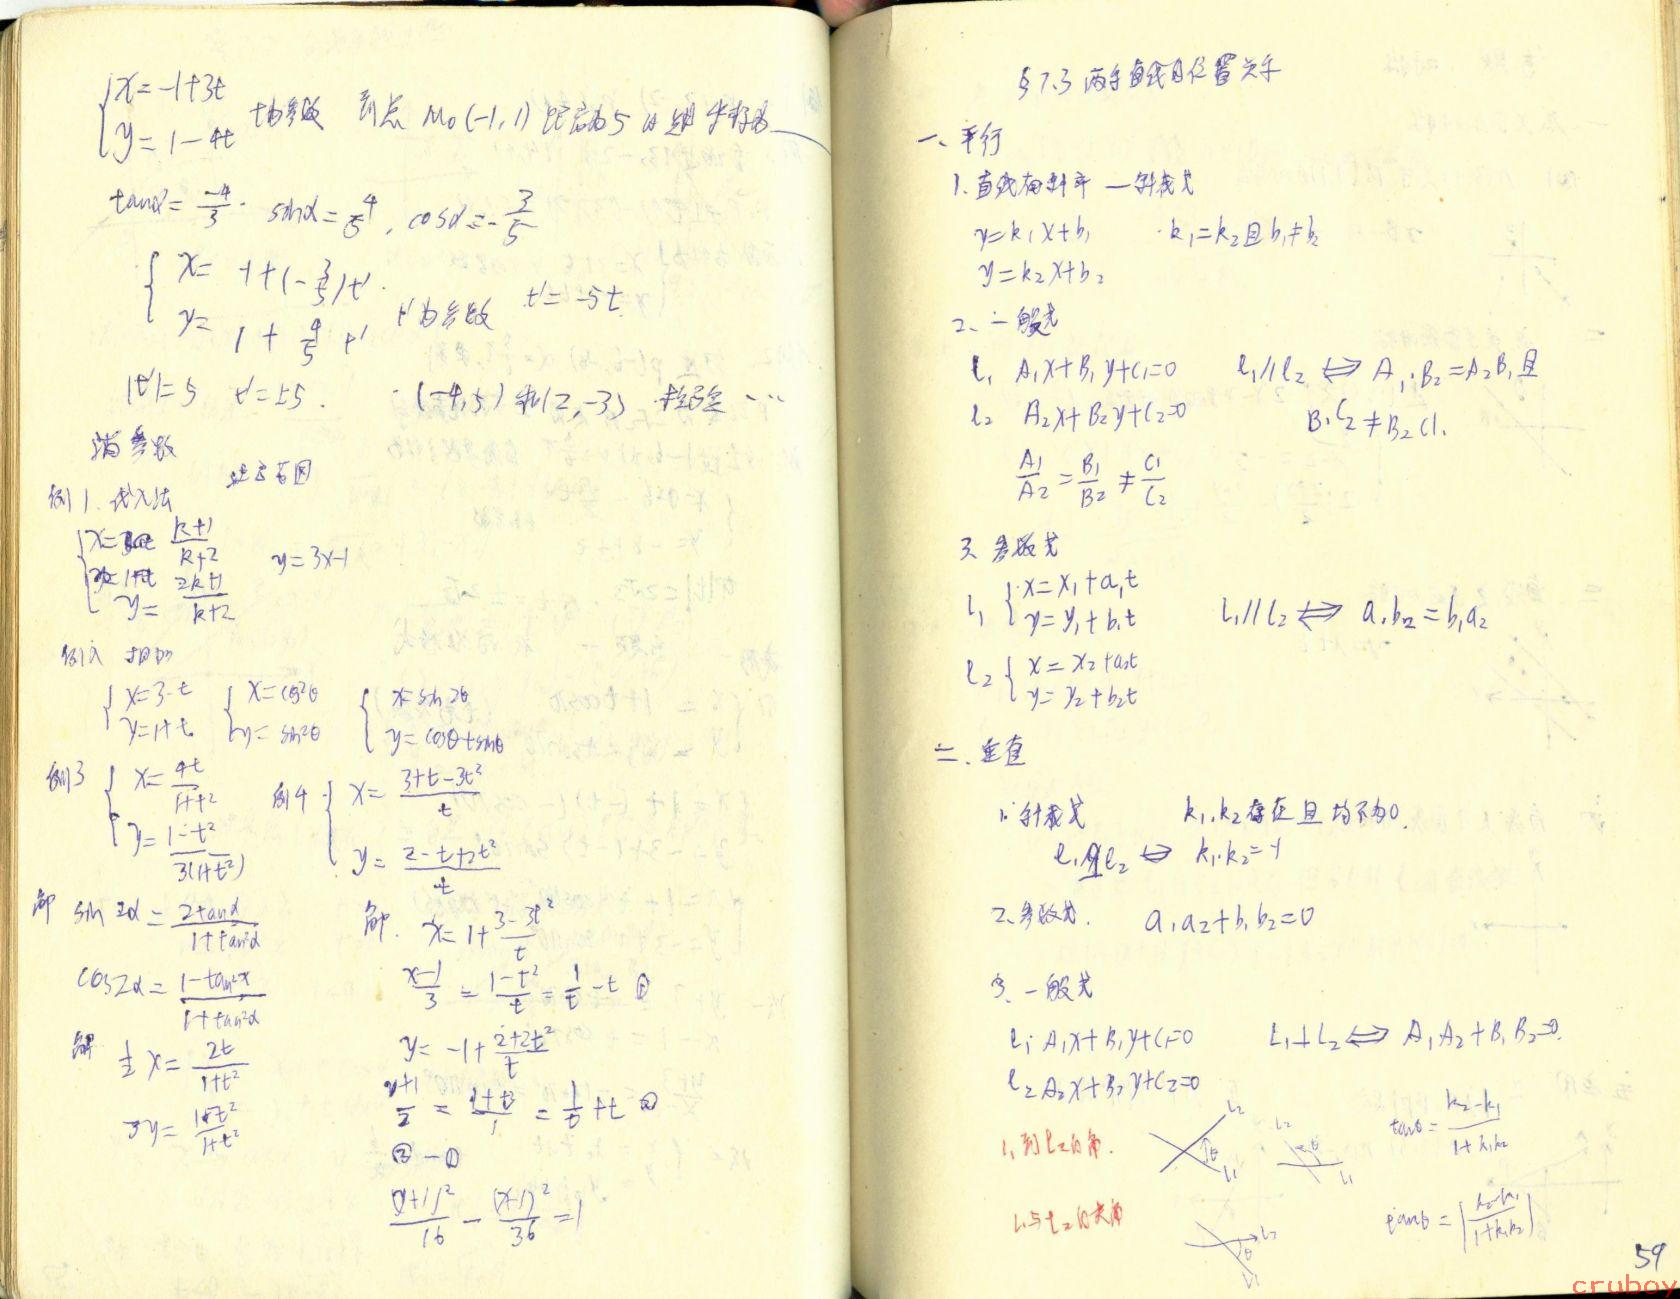 { x = -1+3t
y = 1-4t
t为参数 到点 M₀(-1,1) 距离为5的 坐标为____
tanα = -4/3. sinα = 4/5, cosα = -3/5
{ x = -1+(-3/5)t'
y = 1 + 4/5 t'
t'为参数 t' = -5t.
|t'|=5 t'=±5. (-4,5)和(2,-3)
消参数
注意范围
例1. 代入法
{ x = (k+1)/(k+2)
y = (2k+1)/(k+2)
y=3x-1
例2 相加
{ x=3-t
y=1+t
{ x=cos²θ
y=sin²θ
{ x=sin2θ
y=cosθ+sinθ
例3 { x = 4t/(1+t²)
y = (1-t²)/(3(1+t²))
例4 { x = (3+t-3t²)/t
y = (2-t+2t²)/t
解 sin2α = 2tanα/(1+tan²α)
cos2α = (1-tan²α)/(1+tan²α)
解 1/2 x = 2t/(1+t²)
3y = (1-t²)/(1+t²)
解. x = 1+(3-3t²)/t
(x-1)/3 = (1-t²)/t = 1/t - t ①
y = -1+(2+2t²)/t
(y+1)/2 = = 1/t + t ②
② - ①
(y+1)²/16 - (x-1)²/36 = 1
§7.3 两条直线的位置关系
一、平行
1. 直线有斜率 — 斜截式
y=k₁x+b₁ k₁=k₂且b₁≠b₂
y=k₂x+b₂
2. 一般式
l₁ A₁x+B₁y+C₁=0 l₁//l₂ ⇔ A₁·B₂=A₂B₁且
l₂ A₂x+B₂y+C₂=0 B₁C₂≠B₂C₁.
A₁/A₂ = B₁/B₂ ≠ C₁/C₂
3. 参数式
l₁ { x=x₁+a₁t
y=y₁+b₁t
l₁//l₂ ⇔ a₁b₂=b₁a₂
l₂ { x=x₂+a₂t
y=y₂+b₂t
二、垂直
1. 斜截式 k₁,k₂存在且均不为0.
l₁⊥l₂ ⇔ k₁·k₂=-1
2. 参数式. a₁a₂+b₁b₂=0
3. 一般式
l₁: A₁x+B₁y+C₁=0 L₁⊥L₂ ⇔ A₁A₂+B₁B₂=0.
l₂ A₂x+B₂y+C₂=0
l₁到l₂的角. l₂ θ l₁ l₂ θ l₁ tanθ = (k₂-k₁)/(1+k₁k₂)
l₁与l₂的夹角 l₂ θ l₁ tanθ = |(k₂-k₁)/(1+k₁k₂)|
59
cruboy